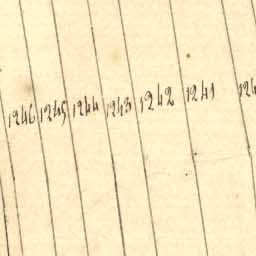 1246 1245 1244 1243 1242 1241